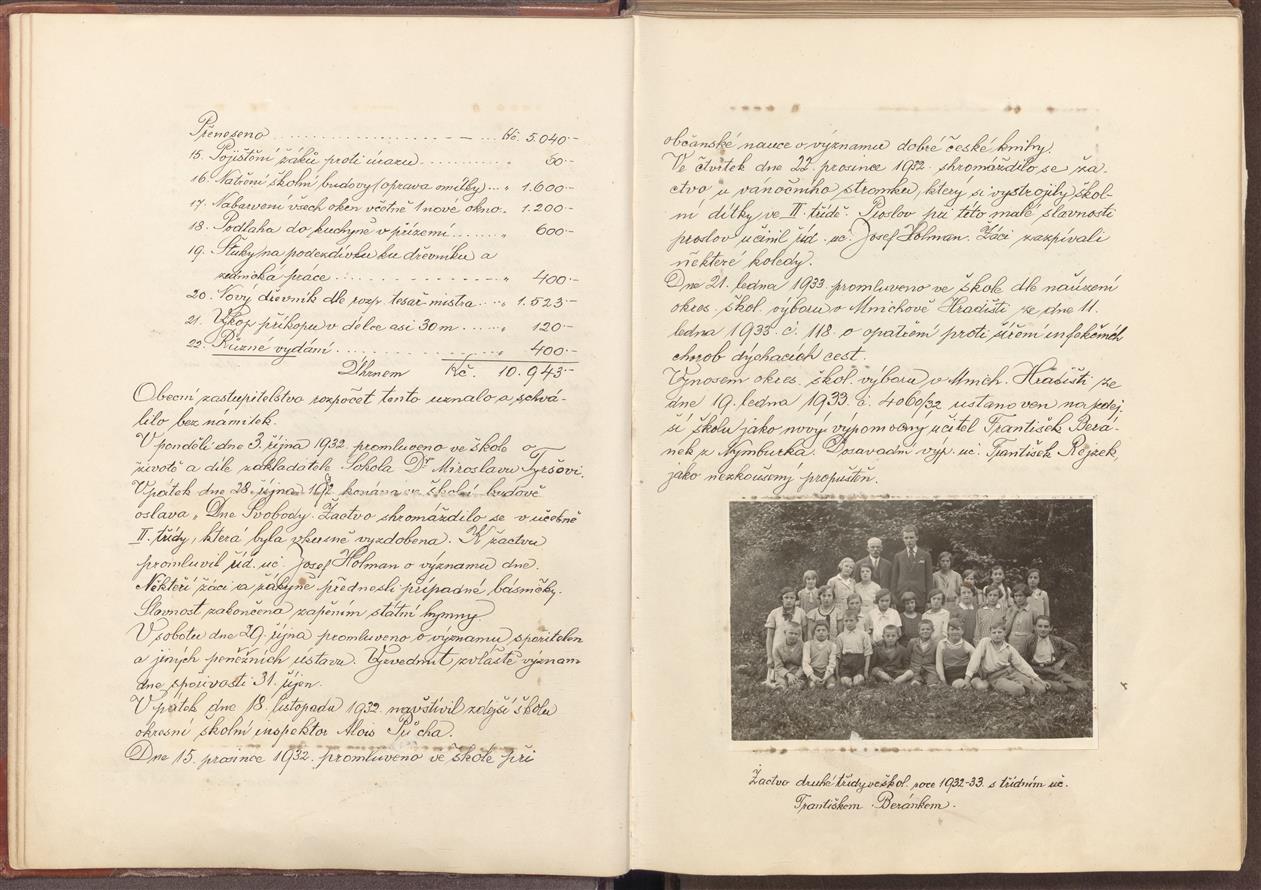 Přeneseno .......... Kč. 5.040·-
15. Pojištění žáků proti úrazu ......... " 50·-
16. Natření školní budovy (oprava omítky) ... " 1.600·-
17. Nabarvení všech oken včetně 1 nové okno. " 1.200·-
18. Podlaha do kuchyně v přízemí ........ " 600·-
19. na podezdívku ku dřevníku a
zednická práce .......... " 400·-
20. Nový dřevník dle rozp. tesař. mistra .... " 1.523·-
21. Výkop příkopu v délce asi 30 m ...... " 120·-
22. Různé vydání .......... " 400·-
Úhrnem Kč. 10.943·-
Obecní zastupitelstvo rozpočet tento uznalo a schvá-
lilo bez námitek.
V pondělí dne 3. října 1932 promluveno ve škole o
životě a díle zakladatele Sokola Dr Miroslavu Tyršovi.
V pátek dne 28. října 1932 konána ve školní budově
oslava „Dne Svobody. Žactvo shromáždilo se v učebně
II. třídy, která byla vkusně vyzdobena. K žactvu
promluvil říd. uč. Josef Holman o významu dne.
Někteří žáci a žákyně přednesli případné básničky.
Slavnost zakončena zapěním státní hymny.
V sobotu dne 29. října promluveno o významu spořitelen
a jiných peněžních ústavů. Vyzvednut zvláště význam
dne spořivosti 31. říjen.
V pátek dne 18. listopadu 1932 navštívil zdejší školu
okresní školní inspektor Alois Půcha.
Dne 15. prosince 1932. promluveno ve škole při
občanské nauce o významu dobré české knihy.
Ve čtvrtek dne 22. prosince 1932. shromáždilo se ža-
ctvo u vánočního stromku, který si vystrojily škol-
ní dítky ve II. třídě. Proslov při této malé slavnosti
proslov učinil říd. uč. Josef Holman. Žáci zazpívali
některé koledy.
Dne 21. ledna 1933 promluveno ve škole dle nařízení
okres. škol. výboru v Mnichově Hradišti ze dne 11.
ledna 1933. č. 118. o opatření proti šíření infekčních
chorob dýchacích cest.
Výnosem okres. škol. výboru v Mnich. Hradišti ze
dne 19. ledna 1933. č. 4060/32 ustanoven na zdej-
ší školu jako nový výpomocný učitel František Berá-
nek z Nymburka. Dosavadní výp. uč. František Rejzek,
jako nezkoušený propuštěn.
Žactvo druhé třídy ve škol. roce 1932-33. s třídním uč.
Františkem Beránkem.